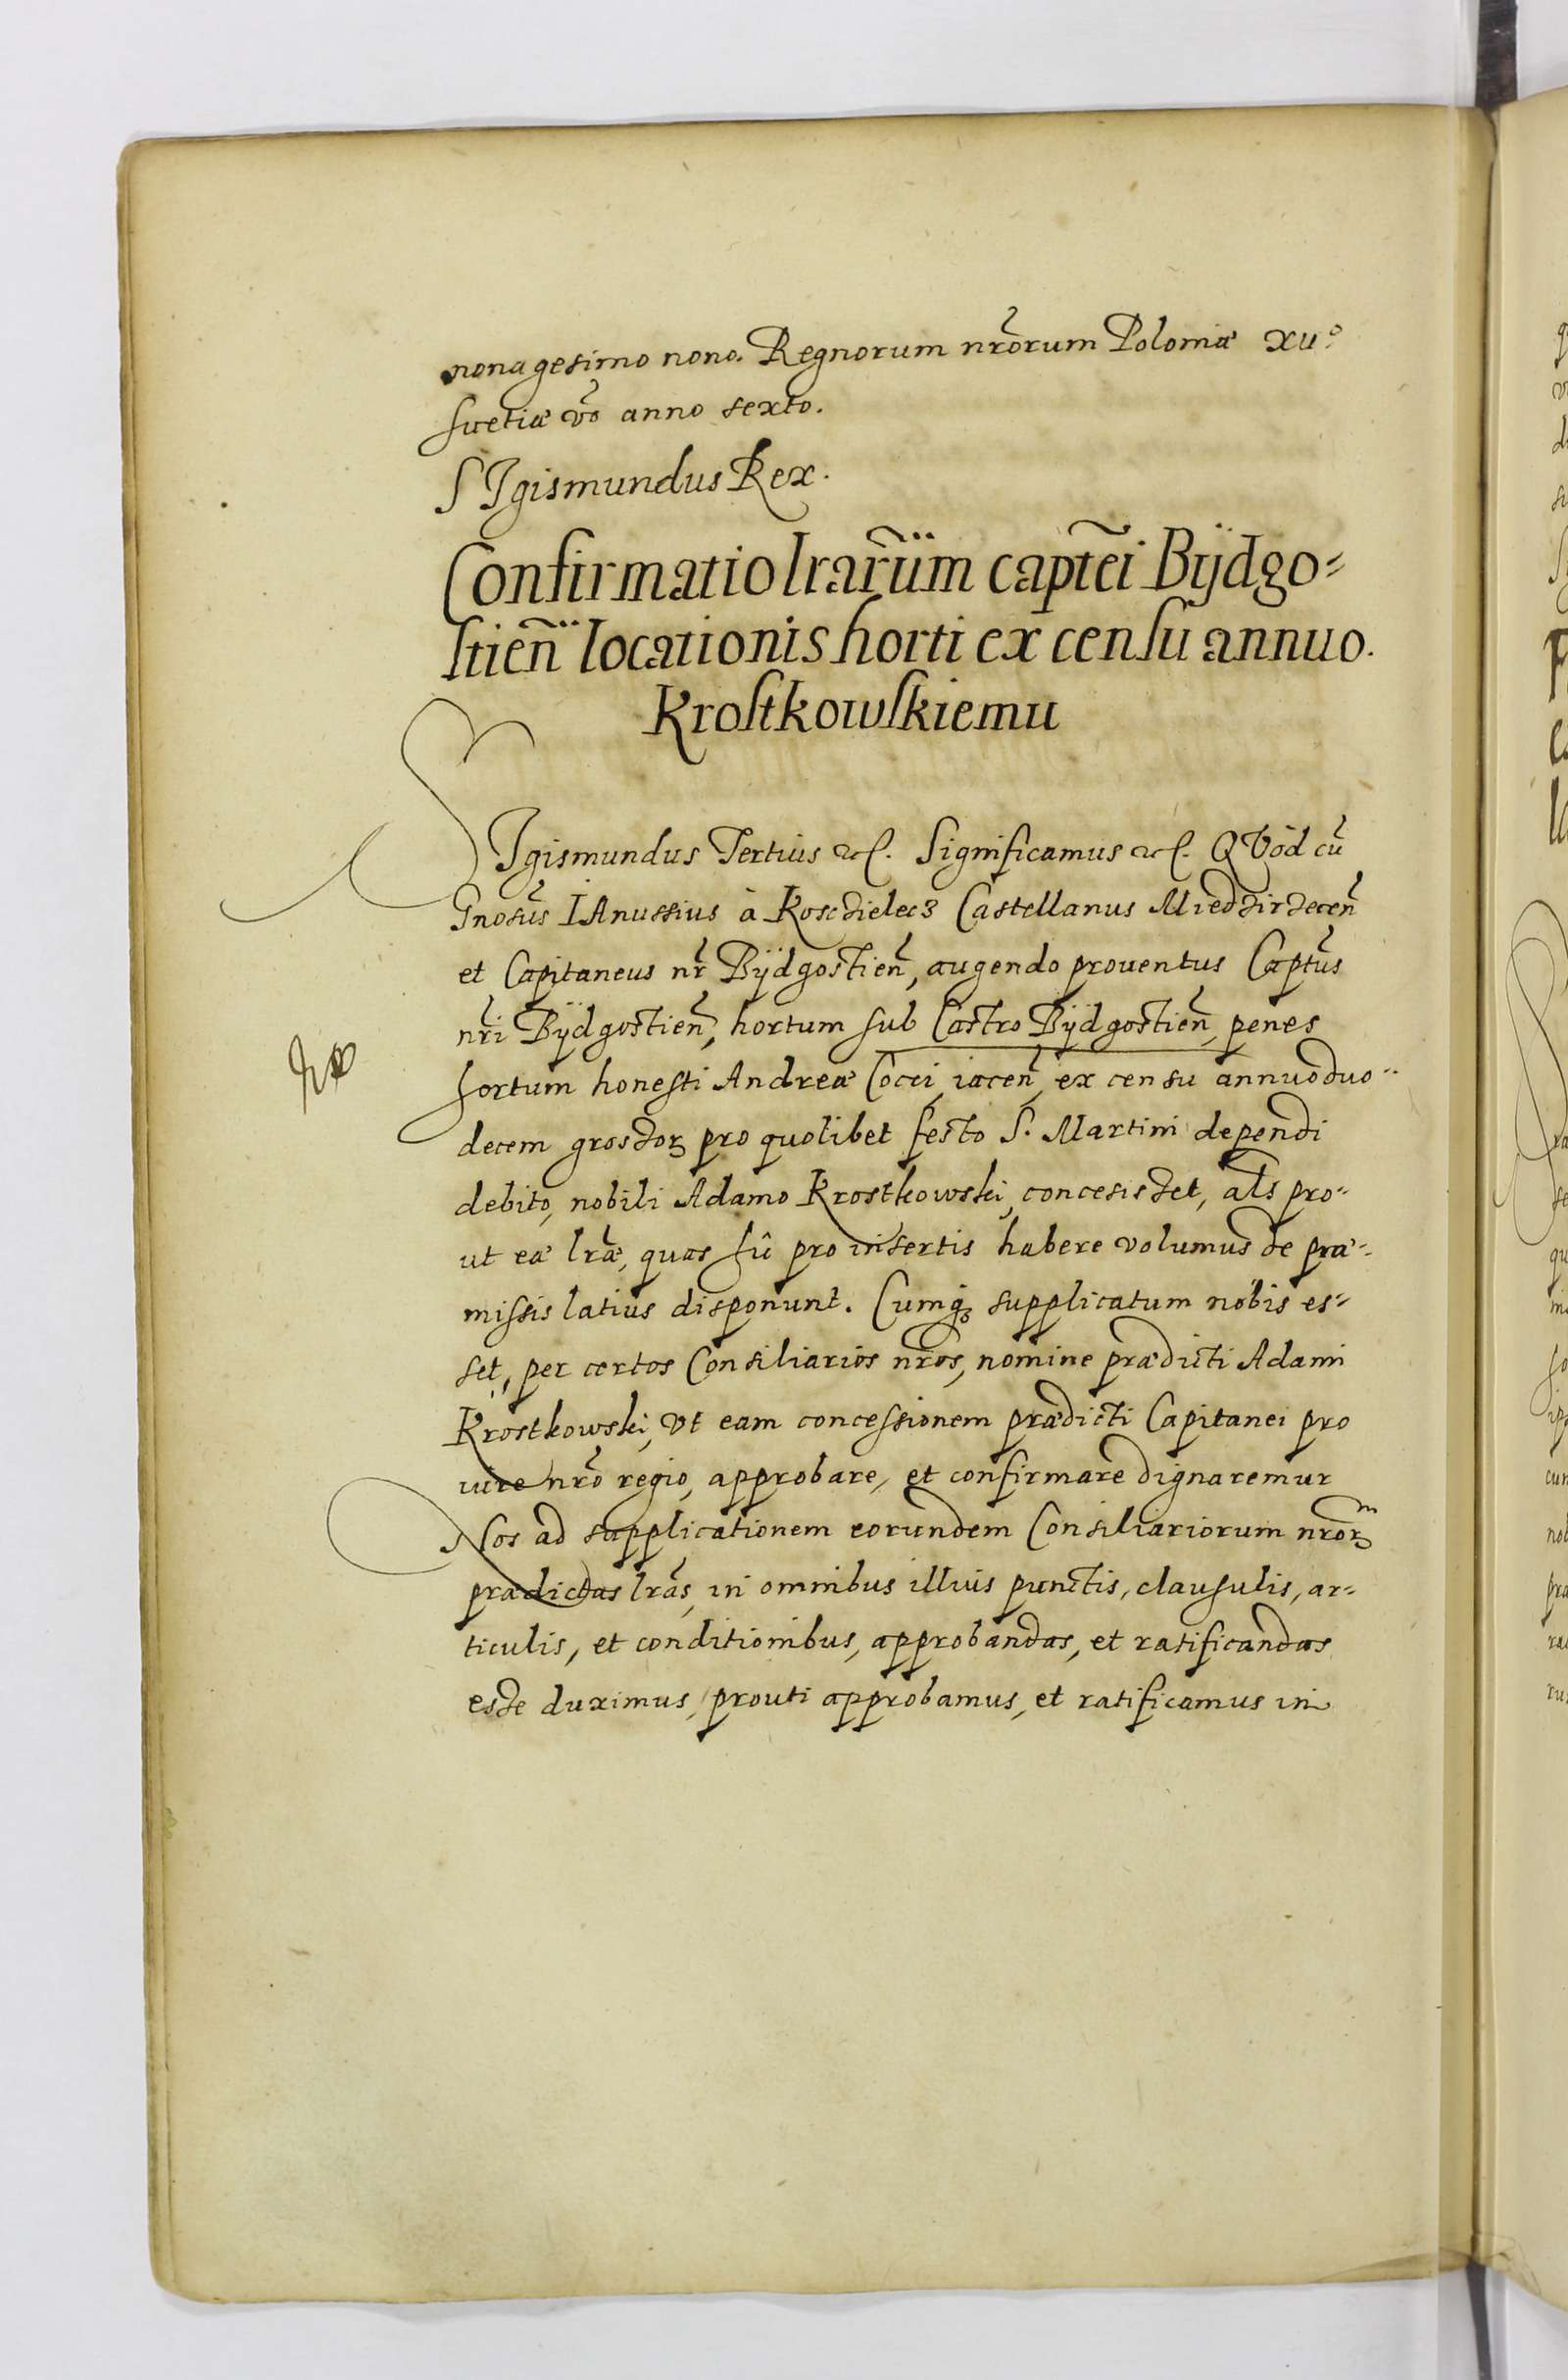 nonagesimo nono. Regnorum nr̃orum Poloniæ xii°
Suetiæ võ anno sexto.
SIgismundus Rex.
Confirmatio lrarũm captẽi Bÿdgo=
stieñ locationis horti ex censu annuo.
Krostkowskiemu
SIgismundus Tertius etc. Significamus etc. QVòd cũ
Gnosũs IAnussius à Koscielecz Castellanus Miedzirzeceñ
et Capitaneus nr̃ Bÿdgostieñ, augendo prouentus Captũs
nr̃i Bÿdgostieñ, hortum sub Castro Bÿdgostieñ, penes
hortum honesti Andreæ Coci, iaceñ, ex censu annuo duo=
decem grossoꝝ pro quolibet festo S. Martini dependi
debito, nobili Adamo Krostkowski, concesisset, als pro=
ut eæ lræ̃, quas hîc pro insertis habere volumus de præ=
missis latius disponunt. Cumqꝫ supplicatum nobis es=
set, per certos Consiliarios nr̃os, nomine prædicti Adami
Krostkowski, vt eam concessionem prædicti Capitanei pro
iure nr̃o regio, approbare, et confirmare dignaremur
Nos ad supplicationem eorundem Consiliariorum nr̃orꝝ
prædictas lrãs, in omnibus illius punctis, clausulis, ar=
ticulis, et conditionibus, approbandas, et ratificandas
esse duximus, prouti approbamus, et ratificamus in